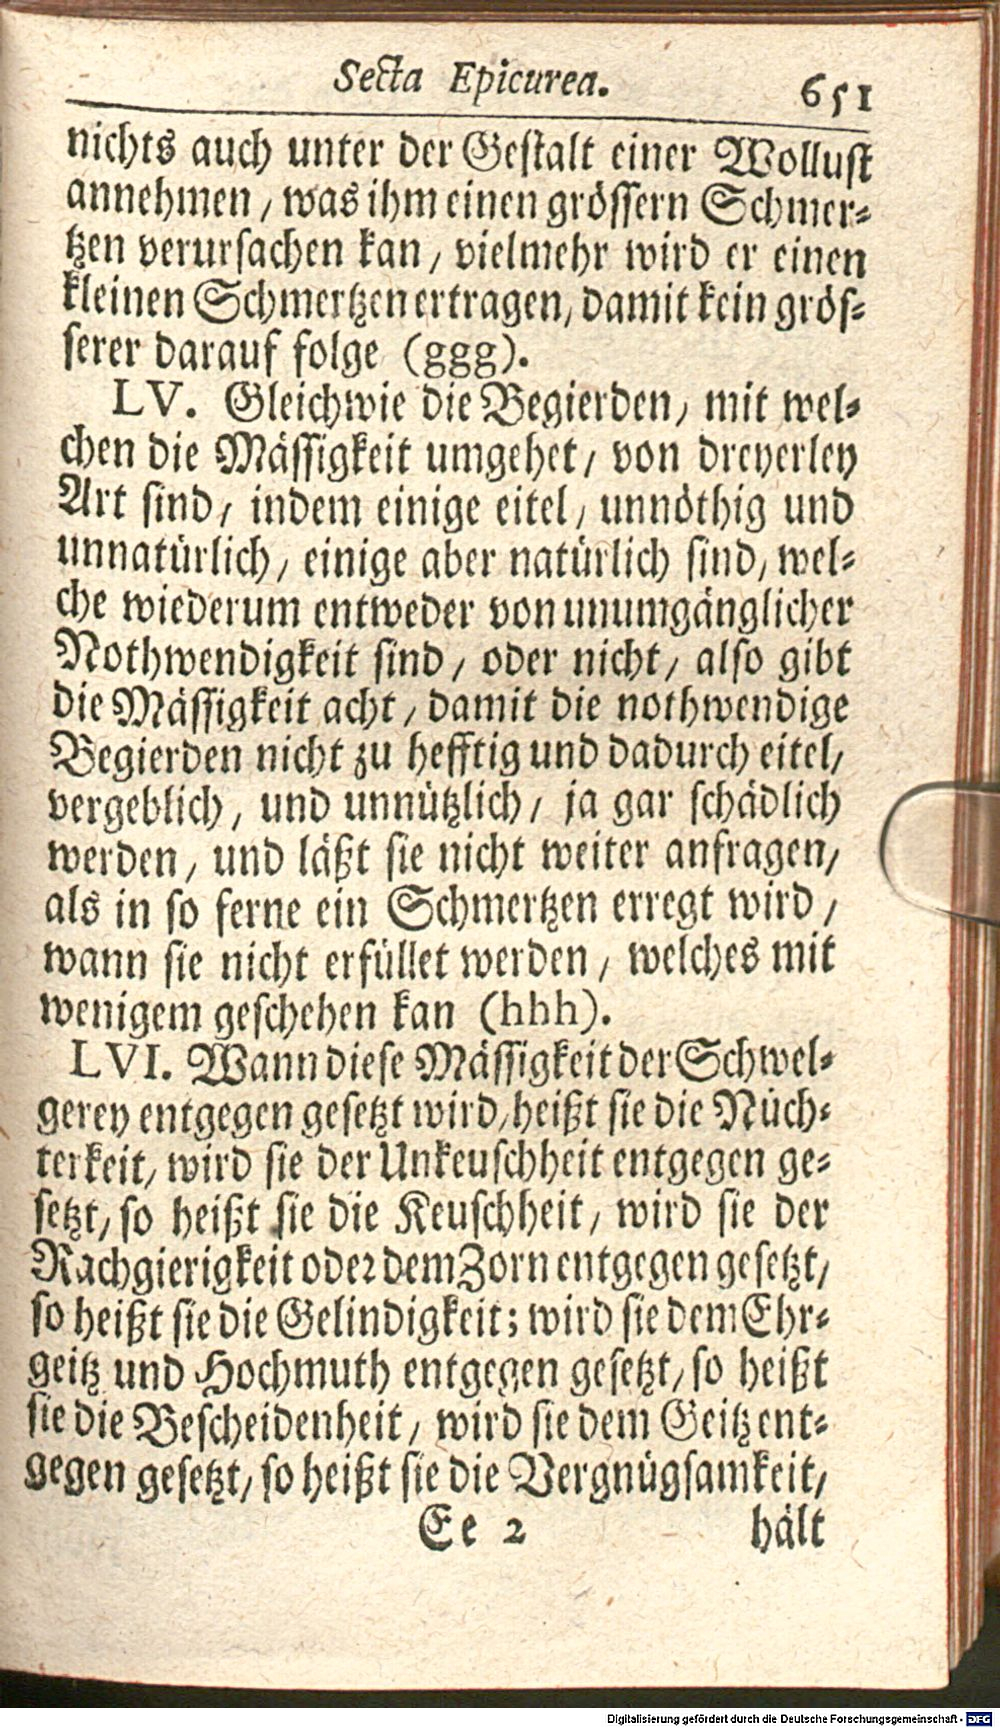 Secta Epicurea. 651
nichts auch unter der Gestalt einer Wollust
annehmen / was ihm einen grössern Schmer-
tzen verursachen kan / vielmehr wird er einen
kleinen Schmertzen ertragen, damit kein grös-
serer darauf folge (ggg).
LV. Gleichwie die Begierden / mit wel-
chen die Mässigkeit umgehet / von dreyerley
Art sind / indem einige eitel / unnöthig und
unnatürlich / einige aber natürlich sind, wel-
che wiederum entweder von unumgänglicher
Nothwendigkeit sind / oder nicht / also gibt
die Mässigkeit acht / damit die nothwendige
Begierden nicht zu hefftig und dadurch eitel /
vergeblich / und unnützlich / ja gar schädlich
werden / und läßt sie nicht weiter anfragen /
als in so ferne ein Schmertzen erregt wird /
wann sie nicht erfüllet werden / welches mit
wenigem geschehen kan (hhh).
LVI. Wann diese Mässigkeit der Schwel-
gerey entgegen gesetzt wird / heißt sie die Nüch-
terkeit / wird sie der Unkeuschheit entgegen ge-
setzt / so heißt sie die Keuschheit / wird sie der
Rachgierigkeit oder dem Zorn entgegen gesetzt /
so heißt sie die Gelindigkeit; wird sie dem Ehr-
geitz und Hochmuth entgegen gesetzt / so heißt
sie die Bescheidenheit / wird sie dem Geitz ent-
gegen gesetzt / so heißt sie die Vergnügsamkeit /
Ee 2 hält
Digitalisierung gefördert durch die Deutsche Forschungsgemeinschaft - DFG